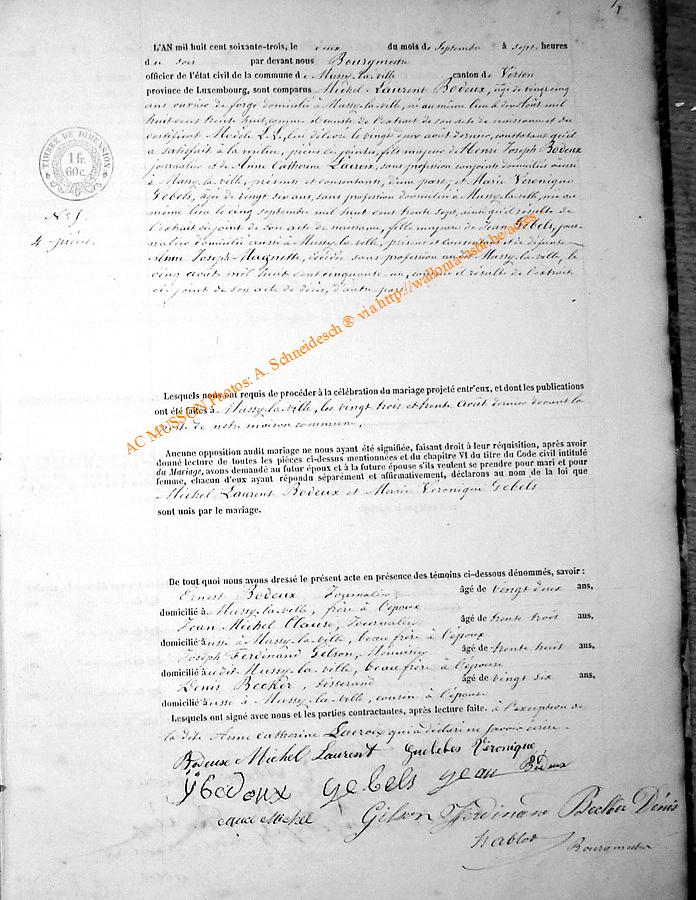 L'AN mil huit cent soixante-trois, le deux du mois de Septembre à sept heures
du soir par devant nous Bourgmestre
officier de l'état civil de la commune de Mussy-la-ville canton de Virton
province de Luxembourg, sont comparus Michel Laurent Bodeux, âgé de vingt cinq
ans ouvrier de forge domicilié à Mussy-la-ville, né au même lieu le deux Août mil
huit cent trente huit, comme il conste de l'extrait de son acte de naissance et du
certificat Modèle L.L., lui délivré le vingt deux août dernier, constatant qu'il
a satisfait à la milice, pièces ci-jointes, fils majeur de Henri Joseph Bodeux
journalier et de Anne Catherine Lacroix, sans profession conjoints domiciliés aussi
à Mussy-la-ville, présents et consentants, d'une part, et Marie Véronique
Gebels, âgée de vingt six ans, sans profession domiciliée à Mussy-la-ville, née au
même lieu le cinq septembre mil huit cent trente sept, ainsi qu'il résulte de
l'extrait ci-joint de son acte de naissance, fille majeure de Jean Gebels, jour-
nalier domicilié aussi à Mussy-la-ville, présent et consentant et de défunte
Anne Joseph Magnette, décédée sans profession au dit Mussy-la-ville, le
cinq août mil huit cent cinquante-un, comme il résulte de l'extrait
ci-joint de son acte de décès, d'autre part
TIMBRE DE DIMENSION
1 fr.
60 c.
N° 5.
4 pièces.
Lesquels nous ont requis de procéder à la célébration du mariage projeté entr'eux, et dont les publications
ont été faites à Mussy-la-ville, les vingt trois et trente Août dernier devant la
porte de notre maison commune.
Aucune opposition audit mariage ne nous ayant été signifiée, faisant droit à leur réquisition, après avoir
donné lecture de toutes les pièces ci-dessus mentionnées et du chapitre VI du titre du Code civil intitulé
du Mariage, avons demandé au futur époux et à la future épouse s'ils veulent se prendre pour mari et pour
femme, chacun d'eux ayant répondu séparément et affirmativement, déclarons au nom de la loi que
Michel Laurent Bodeux et Marie Véronique Gebels
sont unis par le mariage.
De tout quoi nous avons dressé le présent acte en présence des témoins ci-dessous dénommés, savoir :
Ernest Bodeux Journalier âgé de vingt deux ans,
domicilié à Mussy-la-ville, frère à l'époux
Jean Michel Clause, Journalier âgé de trente trois ans,
domicilié aussi à Mussy-la-ville, beau frère à l'époux
Joseph Ferdinand Gilson, Menuisier âgé de trente huit ans,
domicilié audit Mussy-la-ville, beau frère à l'épouse
Denis Becker, tisserand âgé de vingt six ans,
domicilié aussi à Mussy-la-ville, cousin à l'épouse
Lesquels ont signé avec nous et les parties contractantes, après lecture faite. à l'exception de
la dite Anne Catherine Lacroix qui a déclaré ne savoir écrire
Bodeux Michel Laurent Guebebes Véronique
gebels jean Bodeux
Michel Gilson Ferdinand Becker Dénis
Bourgmestre
AC MUSSON Photos: A. Schneidesch ® via http://wallonia-asbl.be/actes